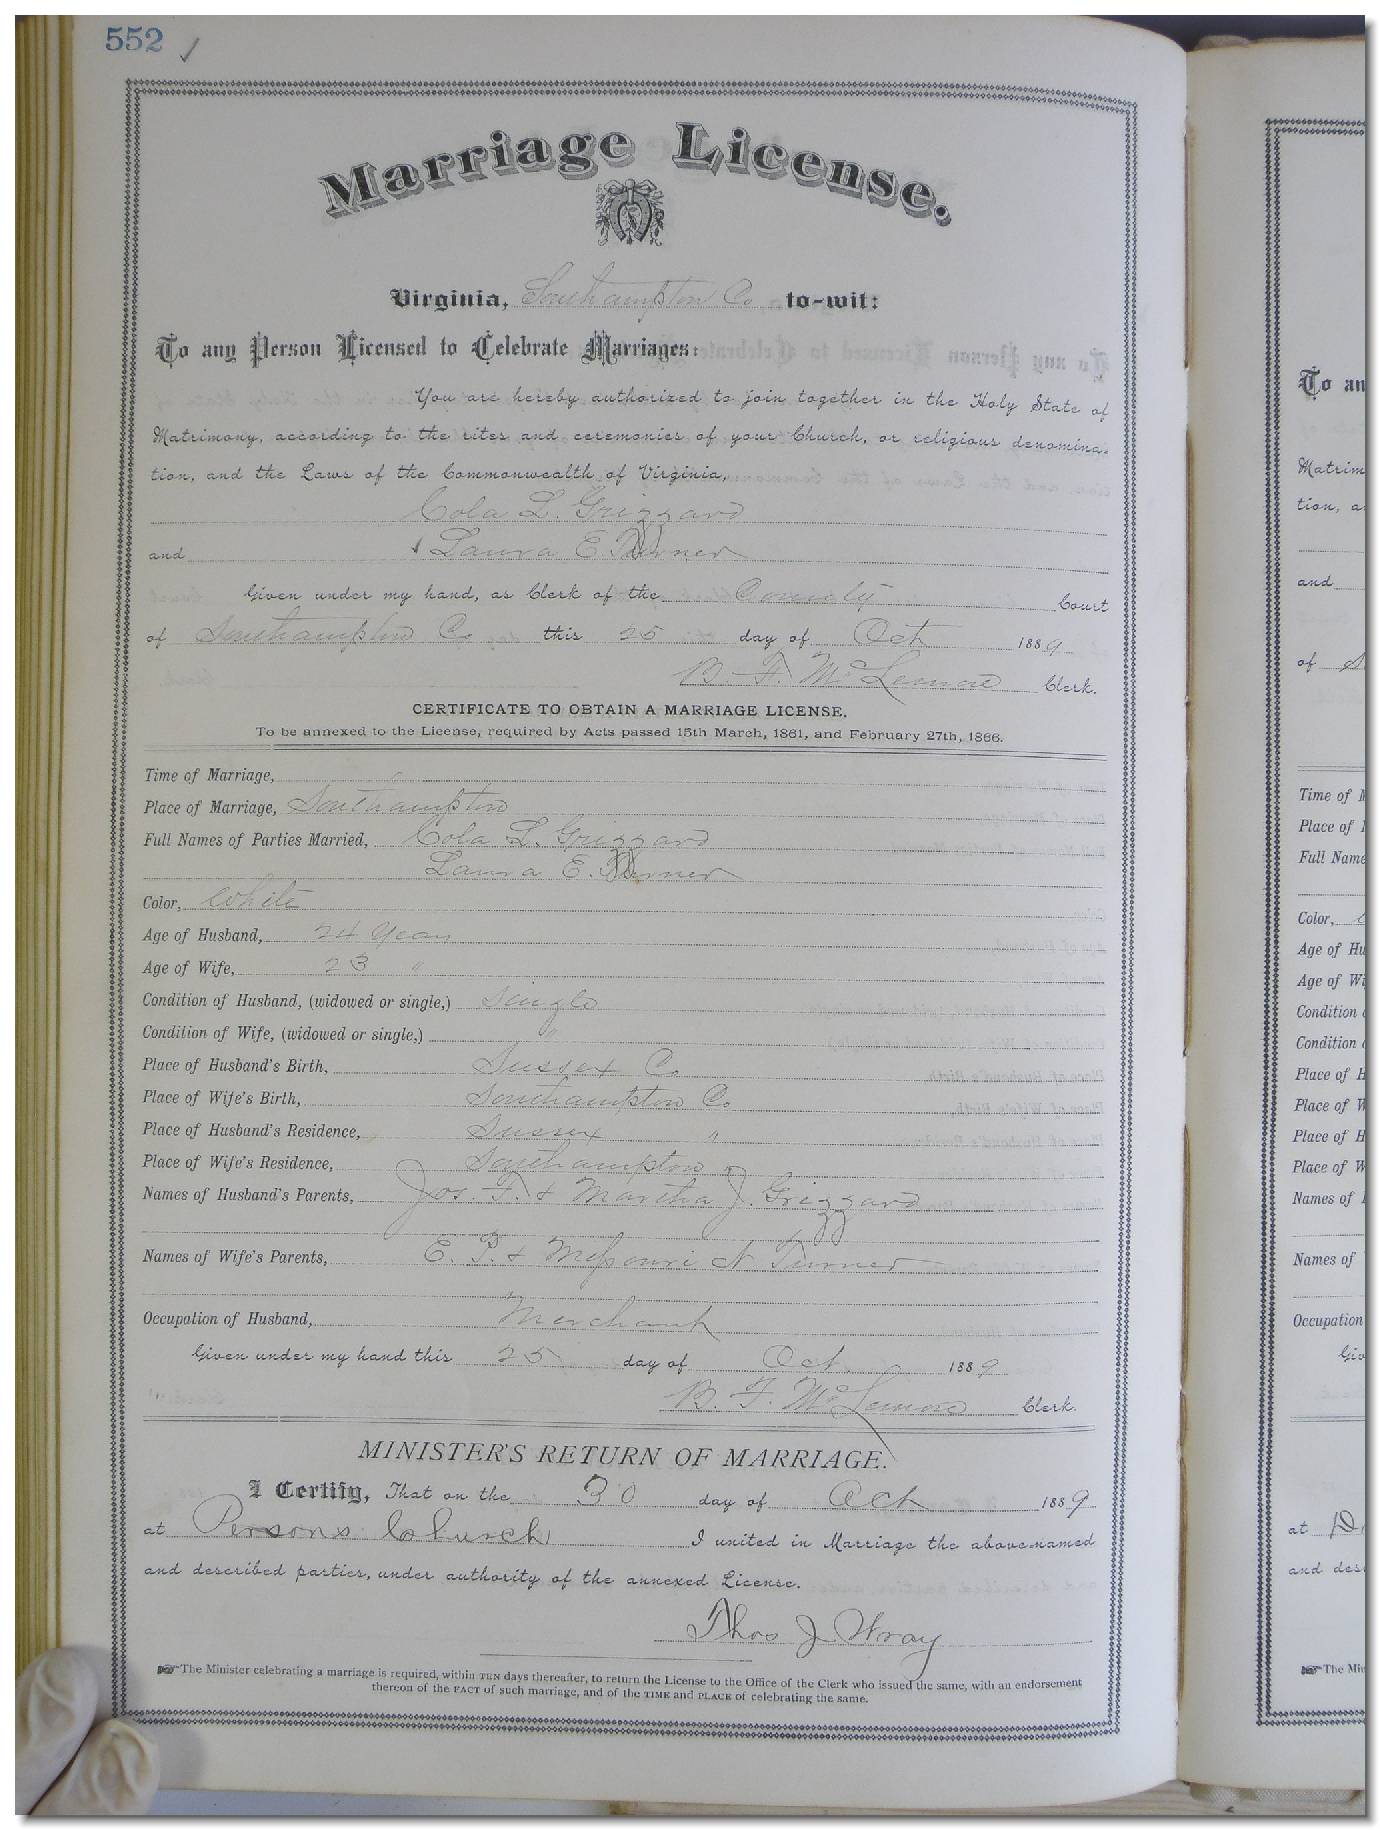 552 ✓
Marriage License.
Virginia, Southampton Co to-wit:
To any Person Licensed to Celebrate Marriages:
You are hereby authorized to join together in the Holy State of
Matrimony, according to the rites and ceremonies of your Church, or religious denomina-
tion, and the Laws of the Commonwealth of Virginia,
Cola L. Grizzard
and Laura E. Turner
Given under my hand, as Clerk of the County Court
of Southampton Co this 25 day of Oct 1889
B. F. McLemore Clerk.
CERTIFICATE TO OBTAIN A MARRIAGE LICENSE.
To be annexed to the License, required by Acts passed 15th March, 1861, and February 27th, 1866.
Time of Marriage,
Place of Marriage, Southampton
Full Names of Parties Married, Cola L. Grizzard
Laura E. Turner
Color, White
Age of Husband, 24 Years
Age of Wife, 23 "
Condition of Husband, (widowed or single,) Single
Condition of Wife, (widowed or single,) "
Place of Husband's Birth, Sussex Co
Place of Wife's Birth, Southampton Co
Place of Husband's Residence, Sussex "
Place of Wife's Residence, Southampton "
Names of Husband's Parents, Jos. T. & Martha J. Grizzard
Names of Wife's Parents, E. P. & Missouri N Turner
Occupation of Husband, Merchant
Given under my hand this 25 day of Oct. 1889
B. F. McLemore Clerk.
MINISTER'S RETURN OF MARRIAGE.
I Certify, That on the 30 day of Oct 1889
at Persons Church I united in Marriage the above-named
and described parties, under authority of the annexed License.
Thos J Wray
The Minister celebrating a marriage is required, within TEN days thereafter, to return the License to the Office of the Clerk who issued the same, with an endorsement
thereon of the FACT of such marriage, and of the TIME and PLACE of celebrating the same.
To an
Matrim
tion, a
and
of
Time of M
Place of
Full Name
Color,
Age of Hu
Age of Wi
Condition
Condition
Place of H
Place of W
Place of H
Place of W
Names of
Names of
Occupation
Giv
at
and des
The Min